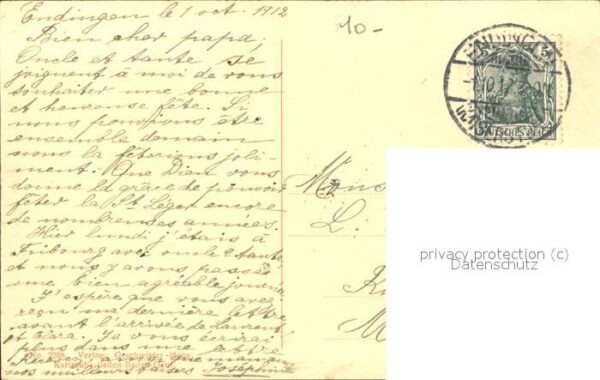 Endingen le 1 oct. 1912
10-
Bien cher papa.
Oncle et tante se
joignent à moi de vous
souhaiter une bonne
et heureuse fête. Si
nous pouvions être
ensemble domain
nous la fêterions joli-
ment. Que Dieu vous
donne la grâce de pouvoir
fêter la St Léger encore
de nombreuses années.
Hier lundi j'étais à
Fribourg avec oncle et tante
et nous y avons passée
une bien agréable journée.
J'espère que vous avez
reçu ma dernière lettre
avant l'arrivée de Laurent
et Clara. Je vous écrirai
plus dans une lettre.
Recevez à maman
nos meilleurs baisers Joséphine
No. 2286 Verlag Geschwister Moos,
Karlsruhe-Baden-Baden
DEUTSCHES REICH
L.
M
privacy protection (c)
Datenschutz